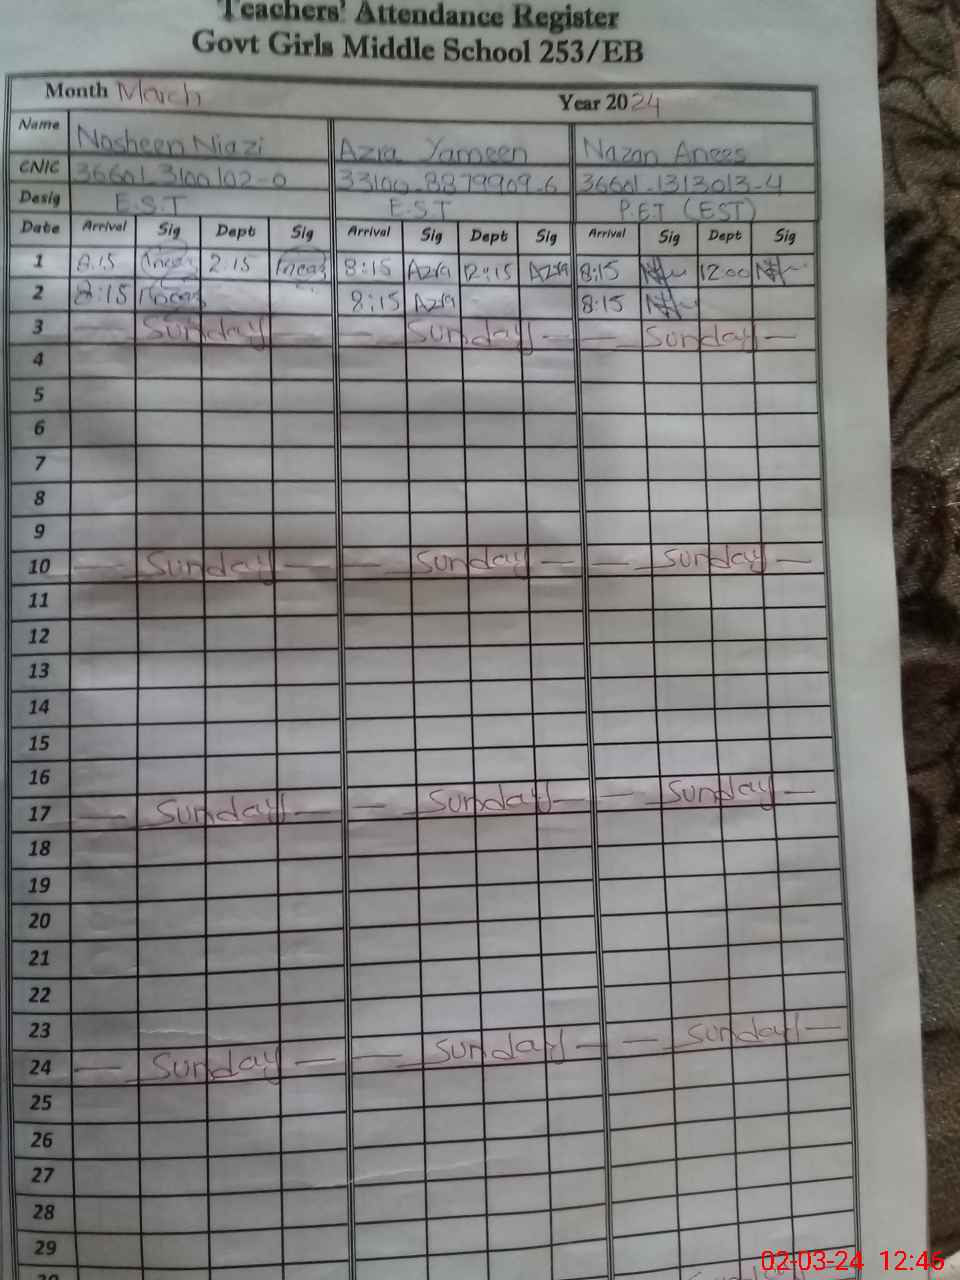 Teachers' Attendance Register
Govt Girls Middle School 253/EB
Month March Year 2024
Name Nosheen Niazi Azra Yameen Nazan Anees
CNIC 36601-3100102-0 33100-8879909-6 36601-1313013-4
Desig E.S.T E.S.T P.E.T (EST)
Date Arrival Sig Dept Sig Arrival Sig Dept Sig Arrival Sig Dept Sig
1 8:15 2:15 8:15 Azra 12:15 Azra 8:15 12:00
2 8:15 8:15 Azra 8:15
3 — Sunday — — Sunday — — Sunday —
4
5
6
7
8
9
10 — Sunday — — Sunday — — Sunday —
11
12
13
14
15
16
17 — Sunday — — Sunday — — Sunday —
18
19
20
21
22
23
24 — Sunday — — Sunday — — Sunday —
25
26
27
28
29
02-03-24 12:46